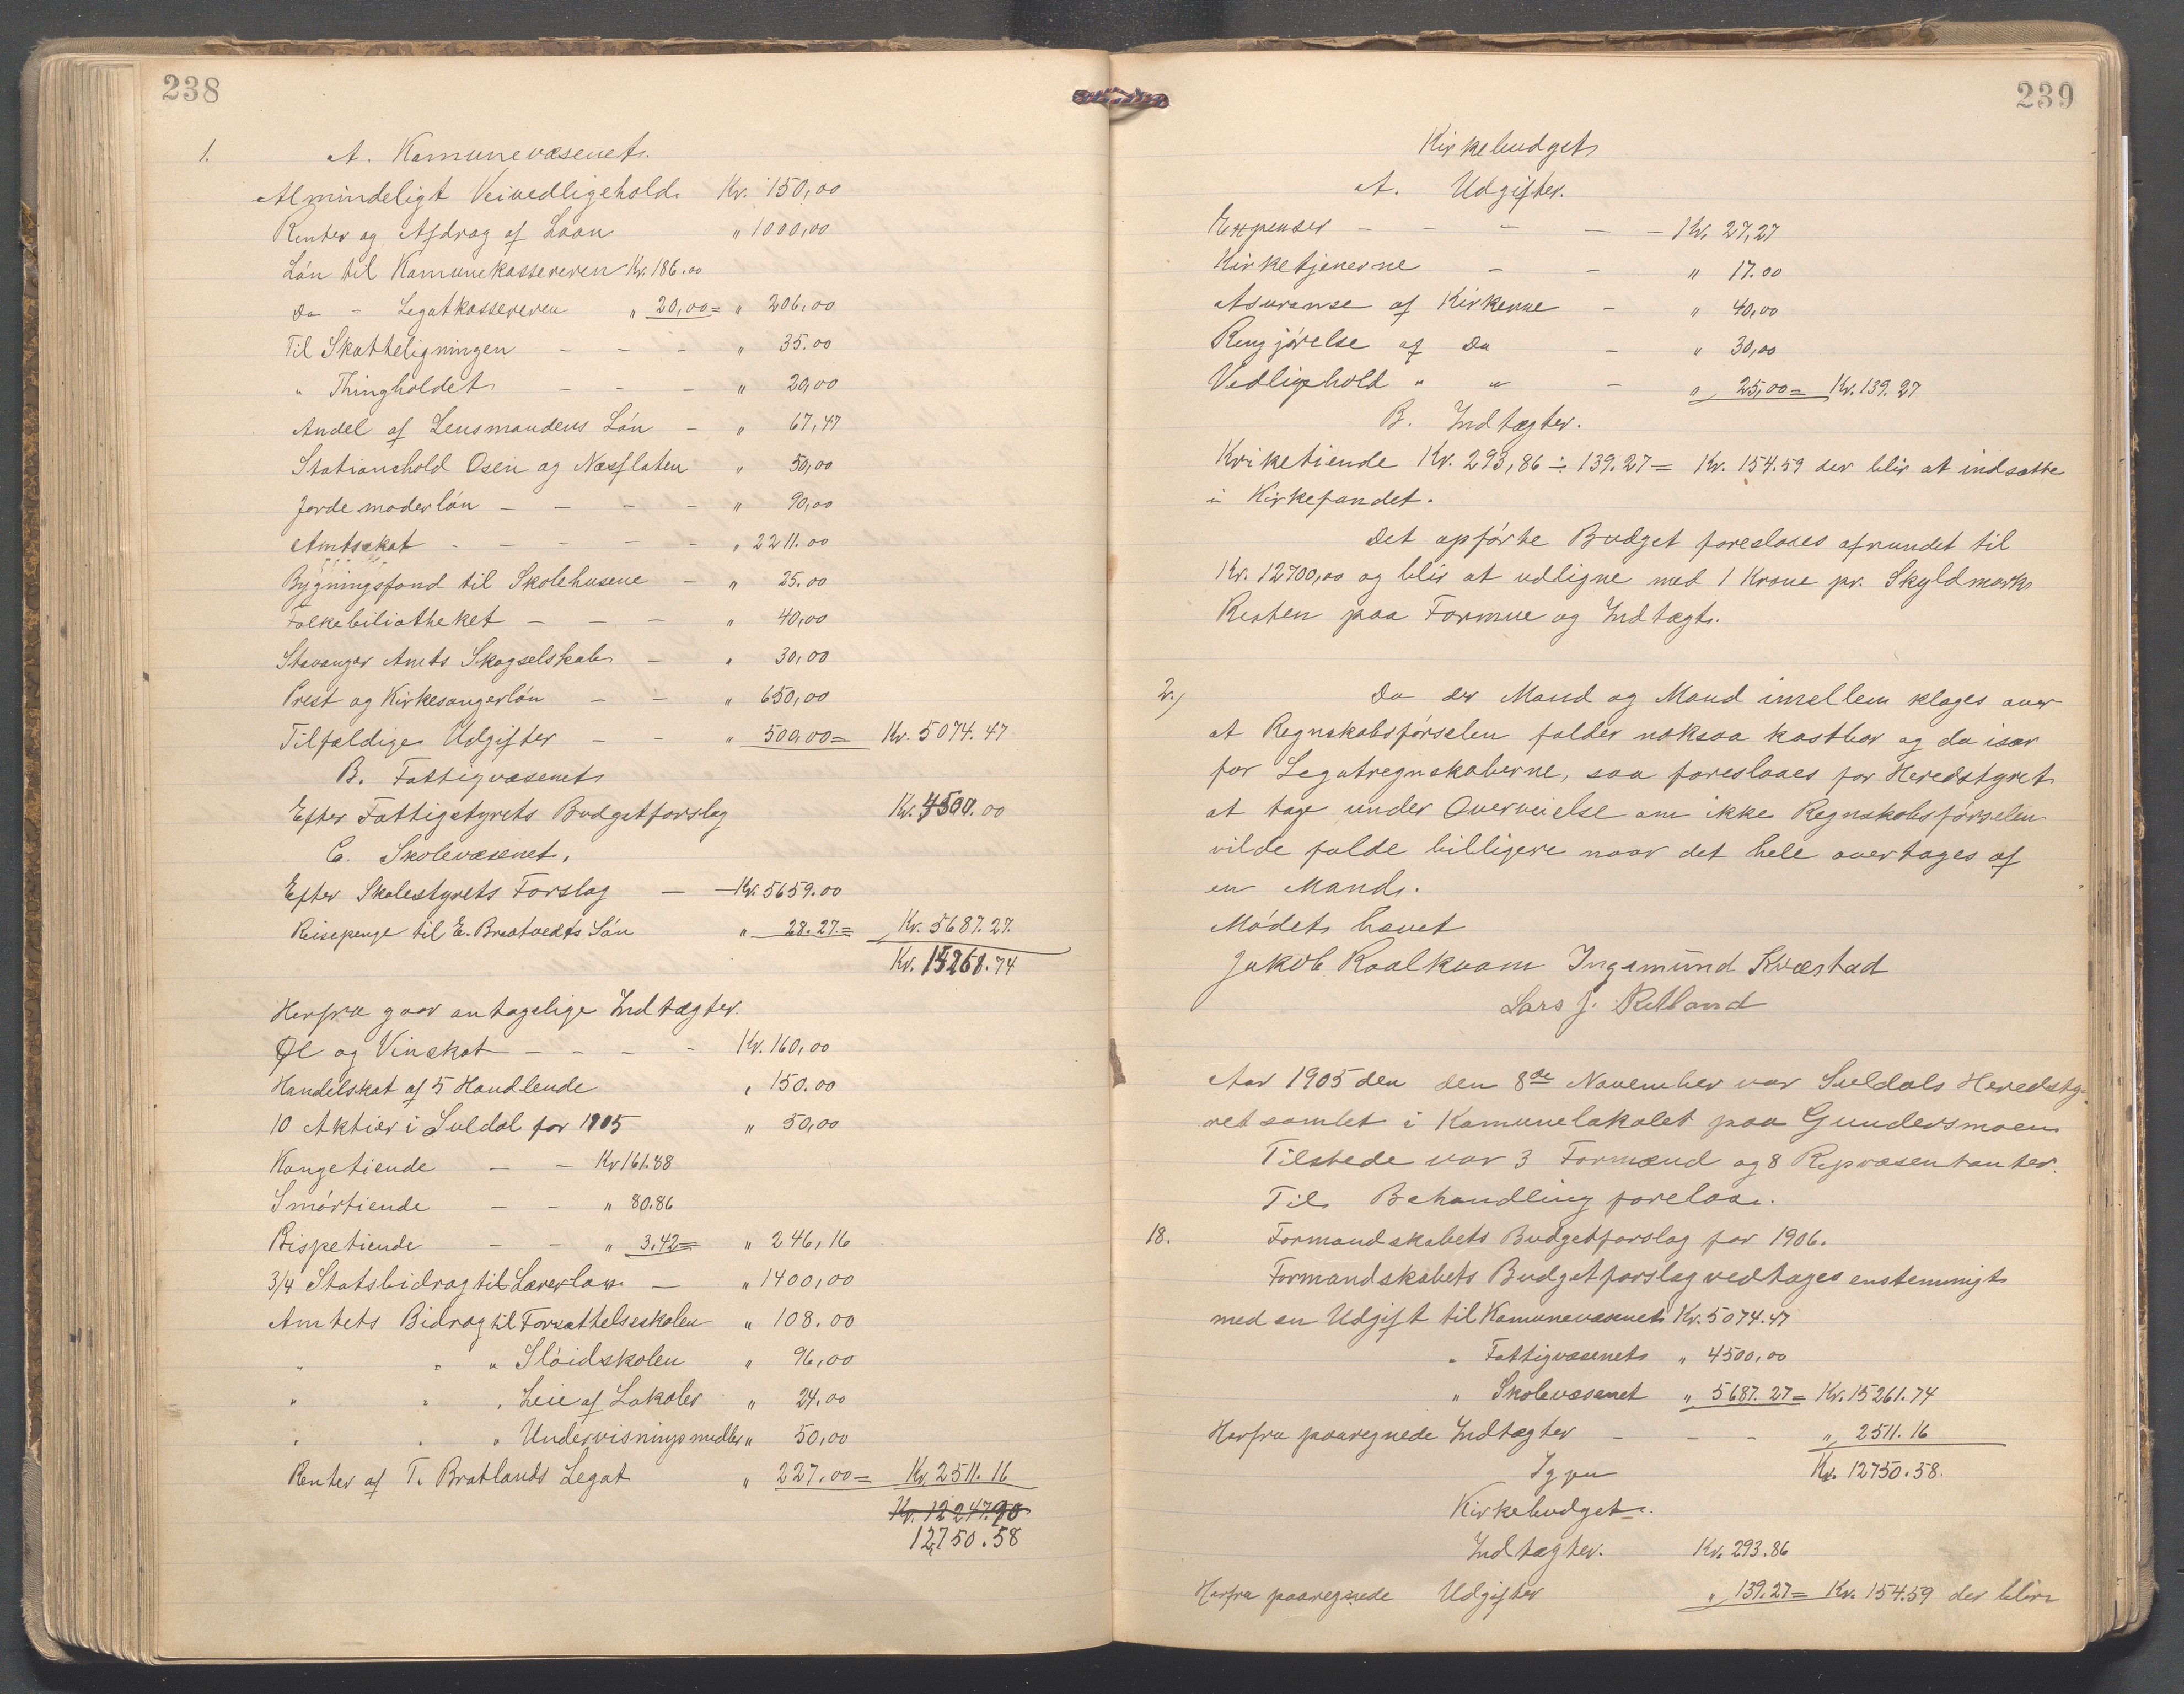 238
1. A. Komunevæsenet.
Almindeligt Veivedligehold Kr. 150,00
Renter og Afdrag af Laan " 1000,00
Lón til Komunekassereren Kr. 186.00
Do - Legatkassereren " 20,00 = " 206,00
Til Skatteligningen - - - " 35.00
" Thingholdet - - - " 20,00
Andel af Lensmandens Lón - " 67,47
Stationshold Osen og Næsflaten " 50,00
Jordemoderlón - - - - " 90,00
Amtsskat - - - - - " 2211.00
Bygningsfond til Skolehusene - " 25.00
Folkebiliotheket - - - " 40,00
Stavanger Amts Skogselskab - " 30,00
Prest og Kirkesangerlón - - " 650,00
Tilfældige Udgifter - - " 500,00 = Kr. 5074.47
B. Fattigvæsenet
Efter Fattigstyrets Budgetforslag Kr. 4500.00
C. Skolevæsenet.
Efter Skolestyrets Forslag - - Kr. 5659.00
Reisepenge til E. Bratvedts Lón " 28.27 = Kr. 5687.27.
Kr. 15261.74
Herfra gaar antagelige Indtægter.
Øl og Vinskat - - - - Kr. 160,00
Handelskat af 5 Handlende " 150.00
10 Aktier i Suldal for 1905 " 50,00
Kongetiende - - Kr 161.88
Smórtiende - - " 80.86
Bispetiende - - " 3.42 = " 246,16
3/4 Statsbidrag til Lærerløn - " 1400,00
Amtets Bidrag til Forsættelseskolen " 108.00
" " " Slóidskolen " 96,00
" " " Leie af Lokaler " 24.00
" " " Undervisningsmidler " 50,00
Renter af T. Bratlands Legat " 227,00 = Kr. 2511.16
Kr. 12247.90
12,750.58
239
Kirkebudget
A. Udgifter.
Expenser - - - - - Kr. 27,27
Kirketjenerne - - " 17.00
Asuranse af Kirkerne - " 40,00
Rengjórelse af Do - " 30,00
Vedligehold " " - " 25,00 = Kr. 139.27
B. Indtægter.
Kriketiende Kr. 293,86 ÷ 139.27 = Kr. 154.59 der blir at indsætte
i Kirkefondet.
Det opførte Budget foreslaaes afrundet til
Kr. 12700,00 og blir at udligne med 1 Krone pr. Skyldmark
Resten paa Formue og Indtægt.
2.) Da der Mand og Mand imellem klages over
at Regnskabsførselen falder noksaa kostbar og da især
for Legatregnskaberne, saa foreslaaes for Heredstyret
at tage under Overveielse om ikke Regnskabsførselen
vilde falde billigere naar det hele overtages af
en Mand.
Módet hævet
Jakob Roalkvam Ingemund Kvæstad
Lars J. Rælland
Aar 1905 den den 8de November var Suldals Heredsty-
ret samlet i Komunelokalet paa Gundersmoen
Tilstede var 3 Formænd og 8 Repræsentanter.
Til Behandling forelaa.
18. Formandskabets Budgetforslag for 1906.
Formandskabets Budgetforslag vedtages enstemmigt
med en Udgift til Komunevæsenet Kr. 5074.47
" Fattigvæsenet " 4500,00
" Skolevæsenet " 5687.27 = Kr. 15261.74
Herfra paaregnede Indtægter - - - " 2511.16
Igjen Kr. 12750.58.
Kirkebudget.
Indtægter. Kr. 293.86
Herfra paaregnede Udgifter " 139.27 = Kr. 154.59 der blir